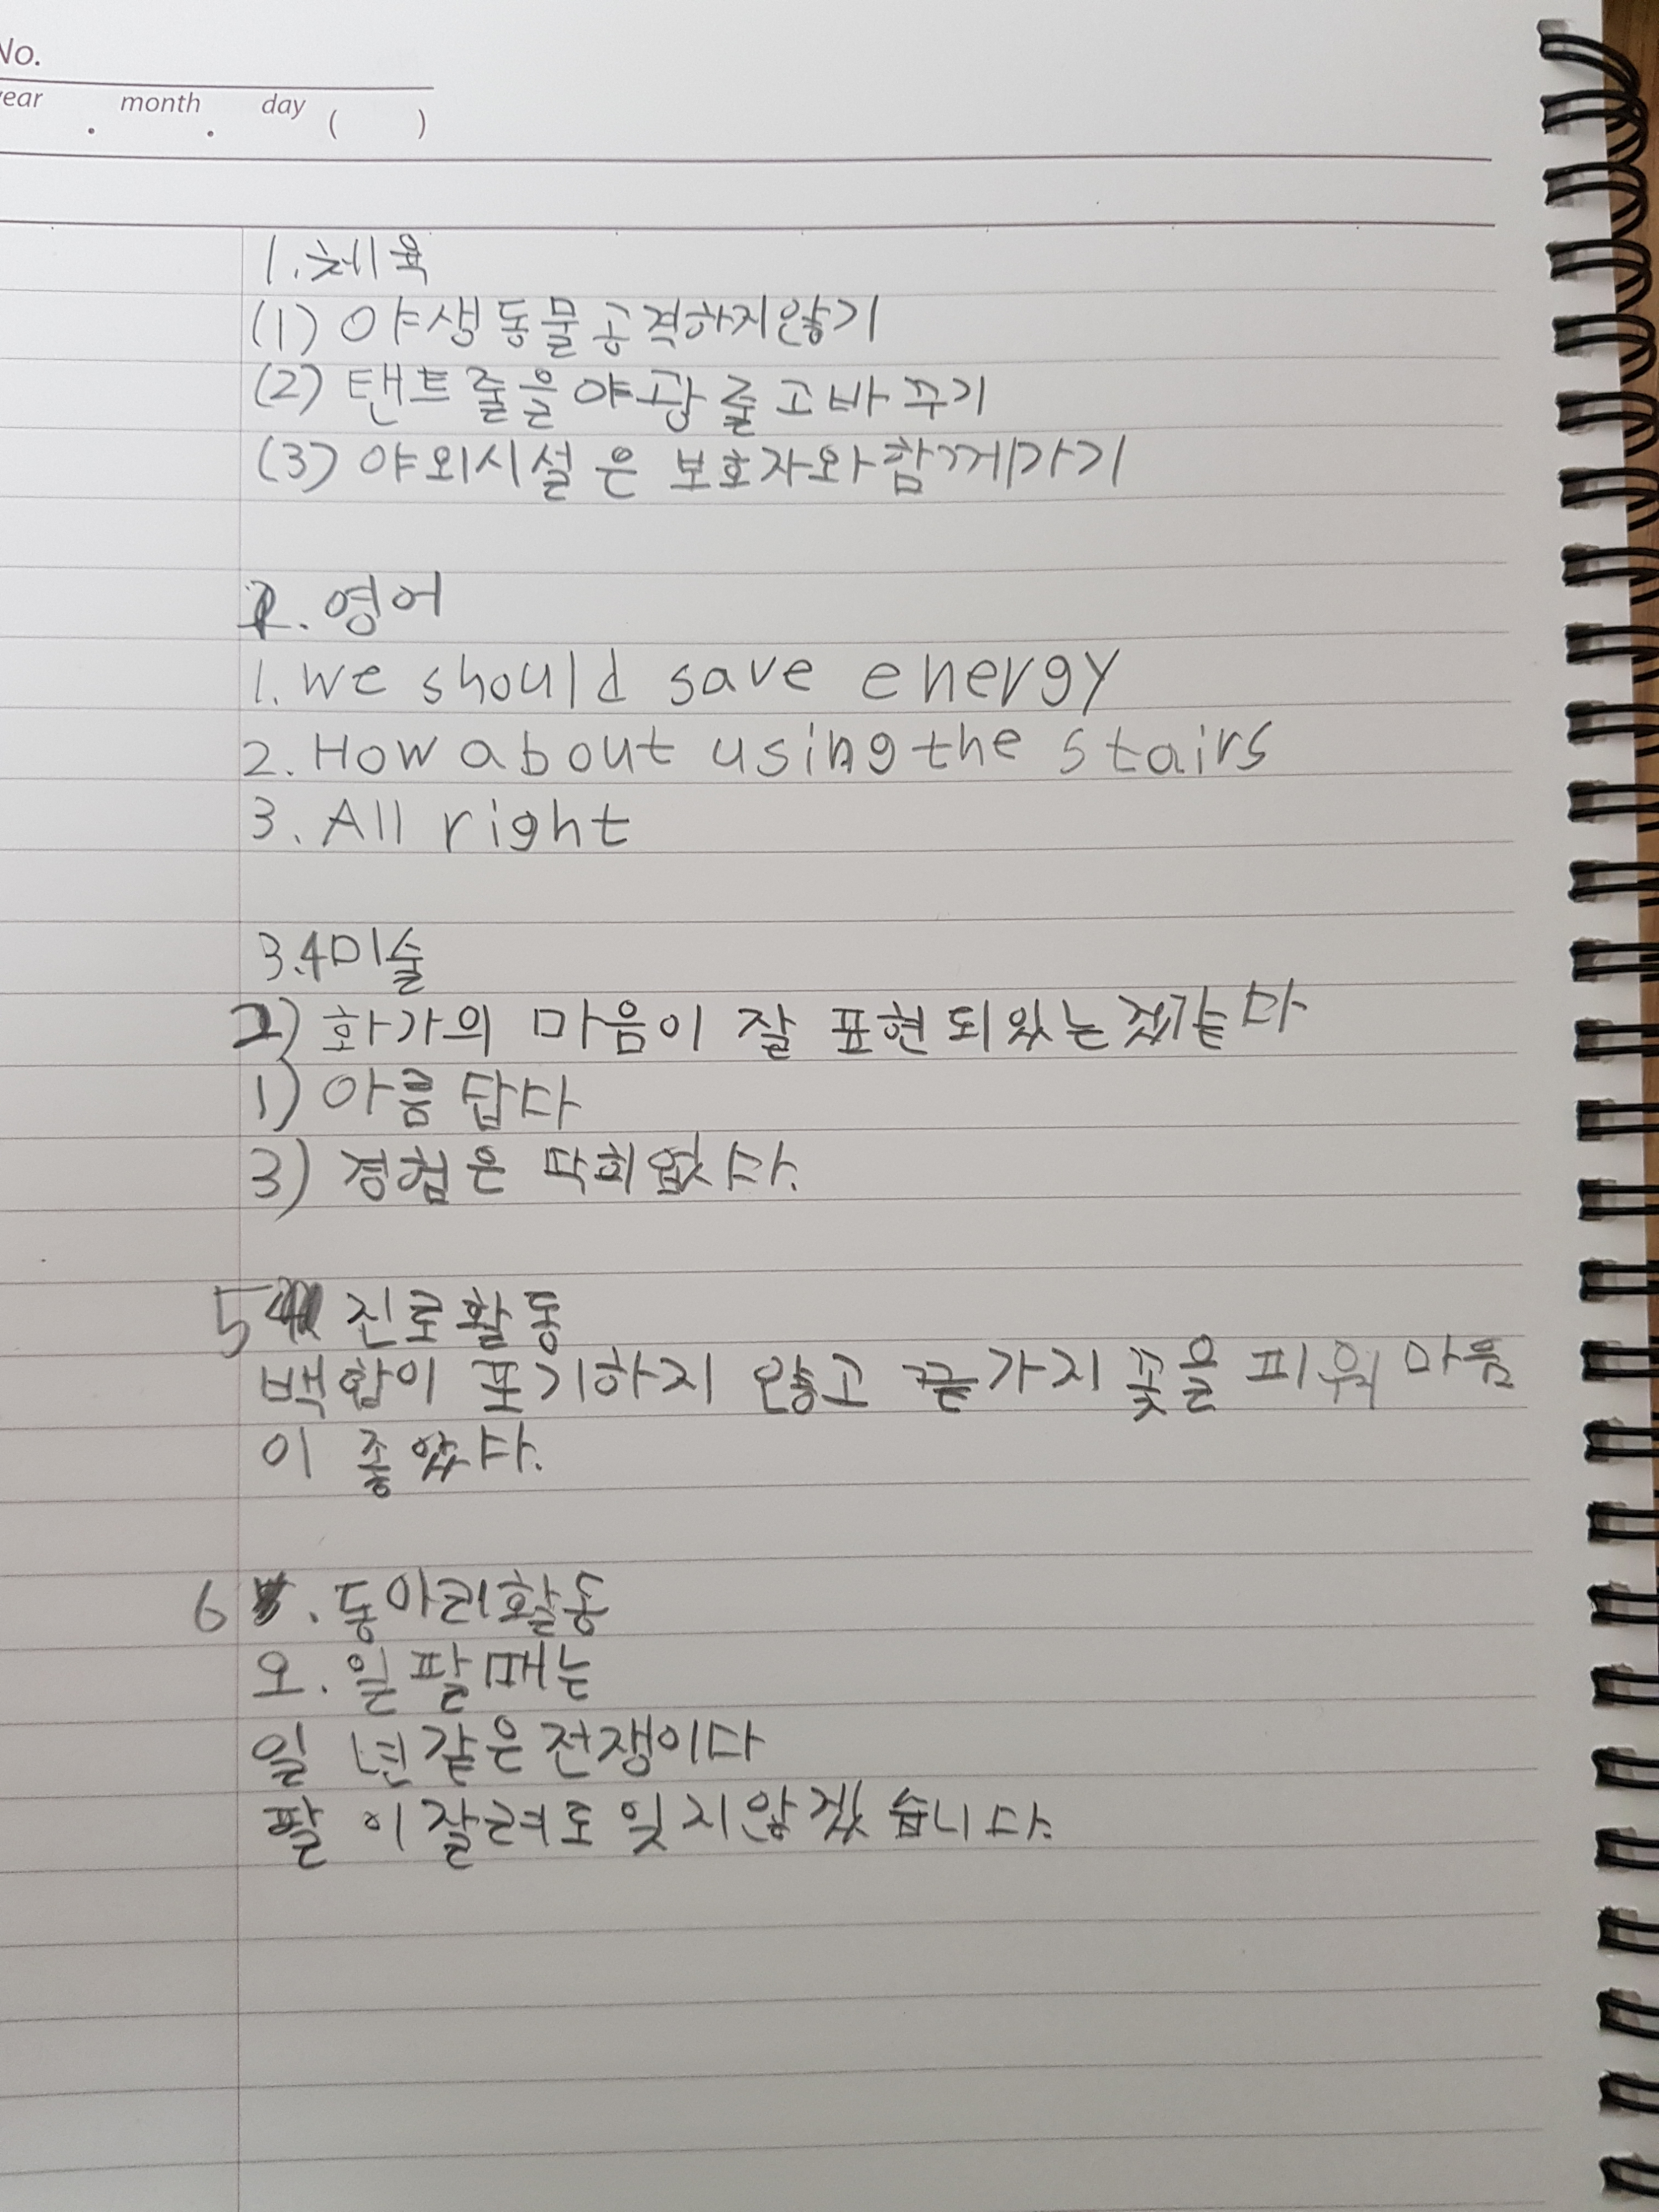 No.
year . month . day ( )
1. 체육
(1) 야생동물공격하지않기
(2) 탠트줄을야광줄고바꾸기
(3) 야외시설은 보호자와함께가기
2. 영어
1. we should save energy
2. How about using the stairs
3. All right
3.4미술
2) 화가의 마음이 잘 표현되있는것같다
1) 아름답다
3) 경험은 딱희없다.
5 진로활동
백합이 포기하지 않고 끝가지 꽃을 피워 마음
이 좋았다.
6 . 동아리활동
오. 일팔때는
일 년같은전쟁이다
팔이잘려도 잊지않겠습니다.